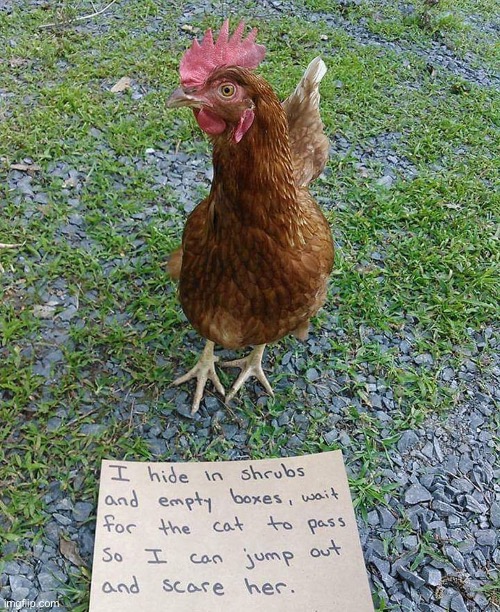 I hide in shrubs
and empty boxes, wait
for the cat to pass
so I can jump out
and scare her.
imgflip.com